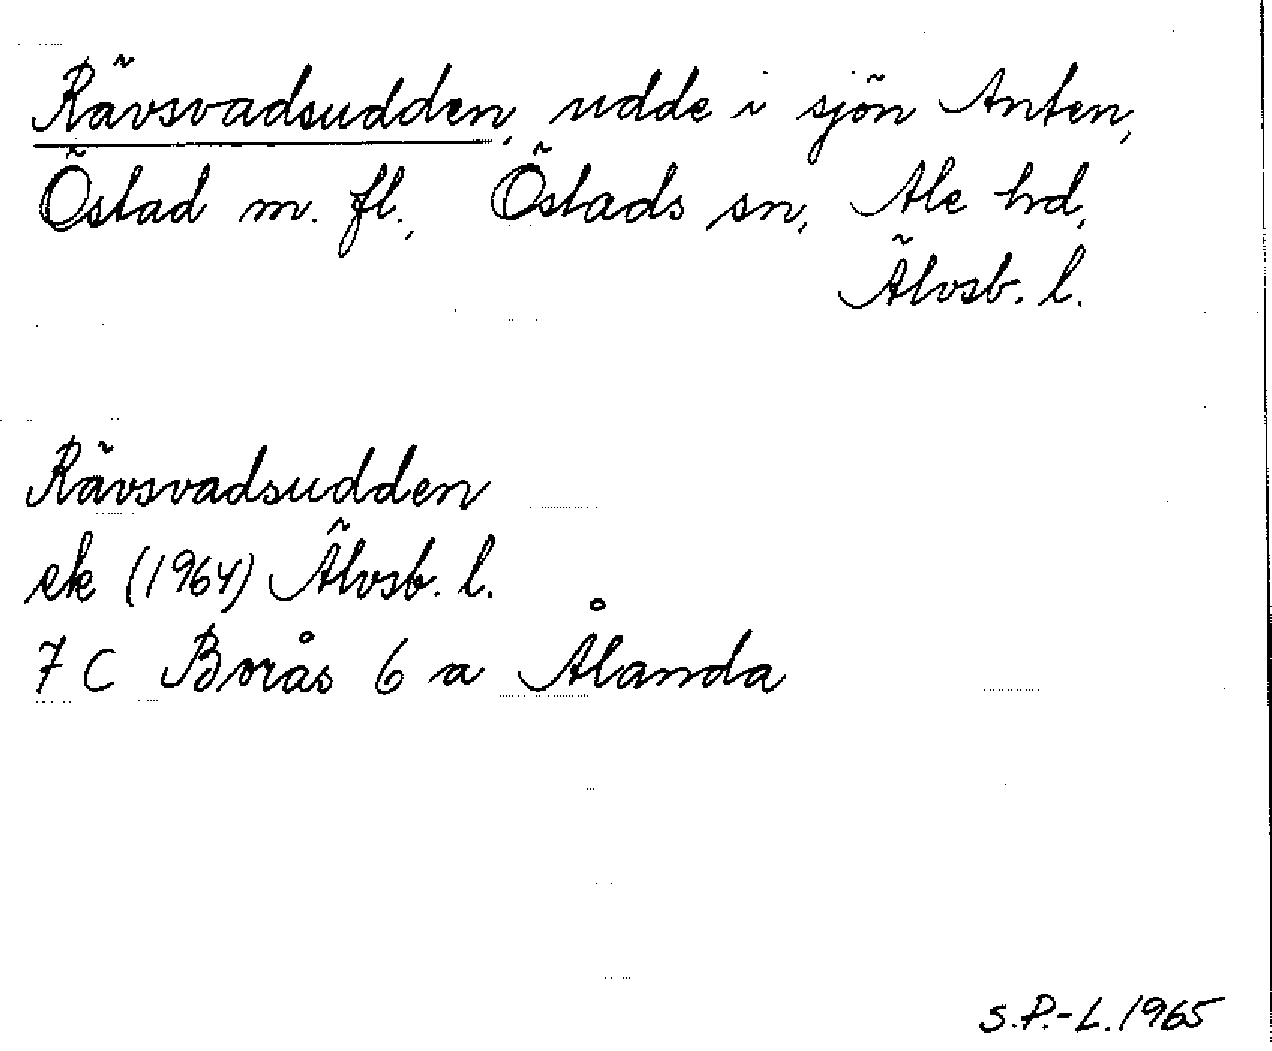 Rävsvadsudden, udde i sjön Anten,
Östad m. fl., Östads sn, Ale hd,
Älvsb. l.
Rävsvadsudden
ek (1964) Älvsb. l.
7 C Borås 6 a Ålanda
S.P.-L. 1965